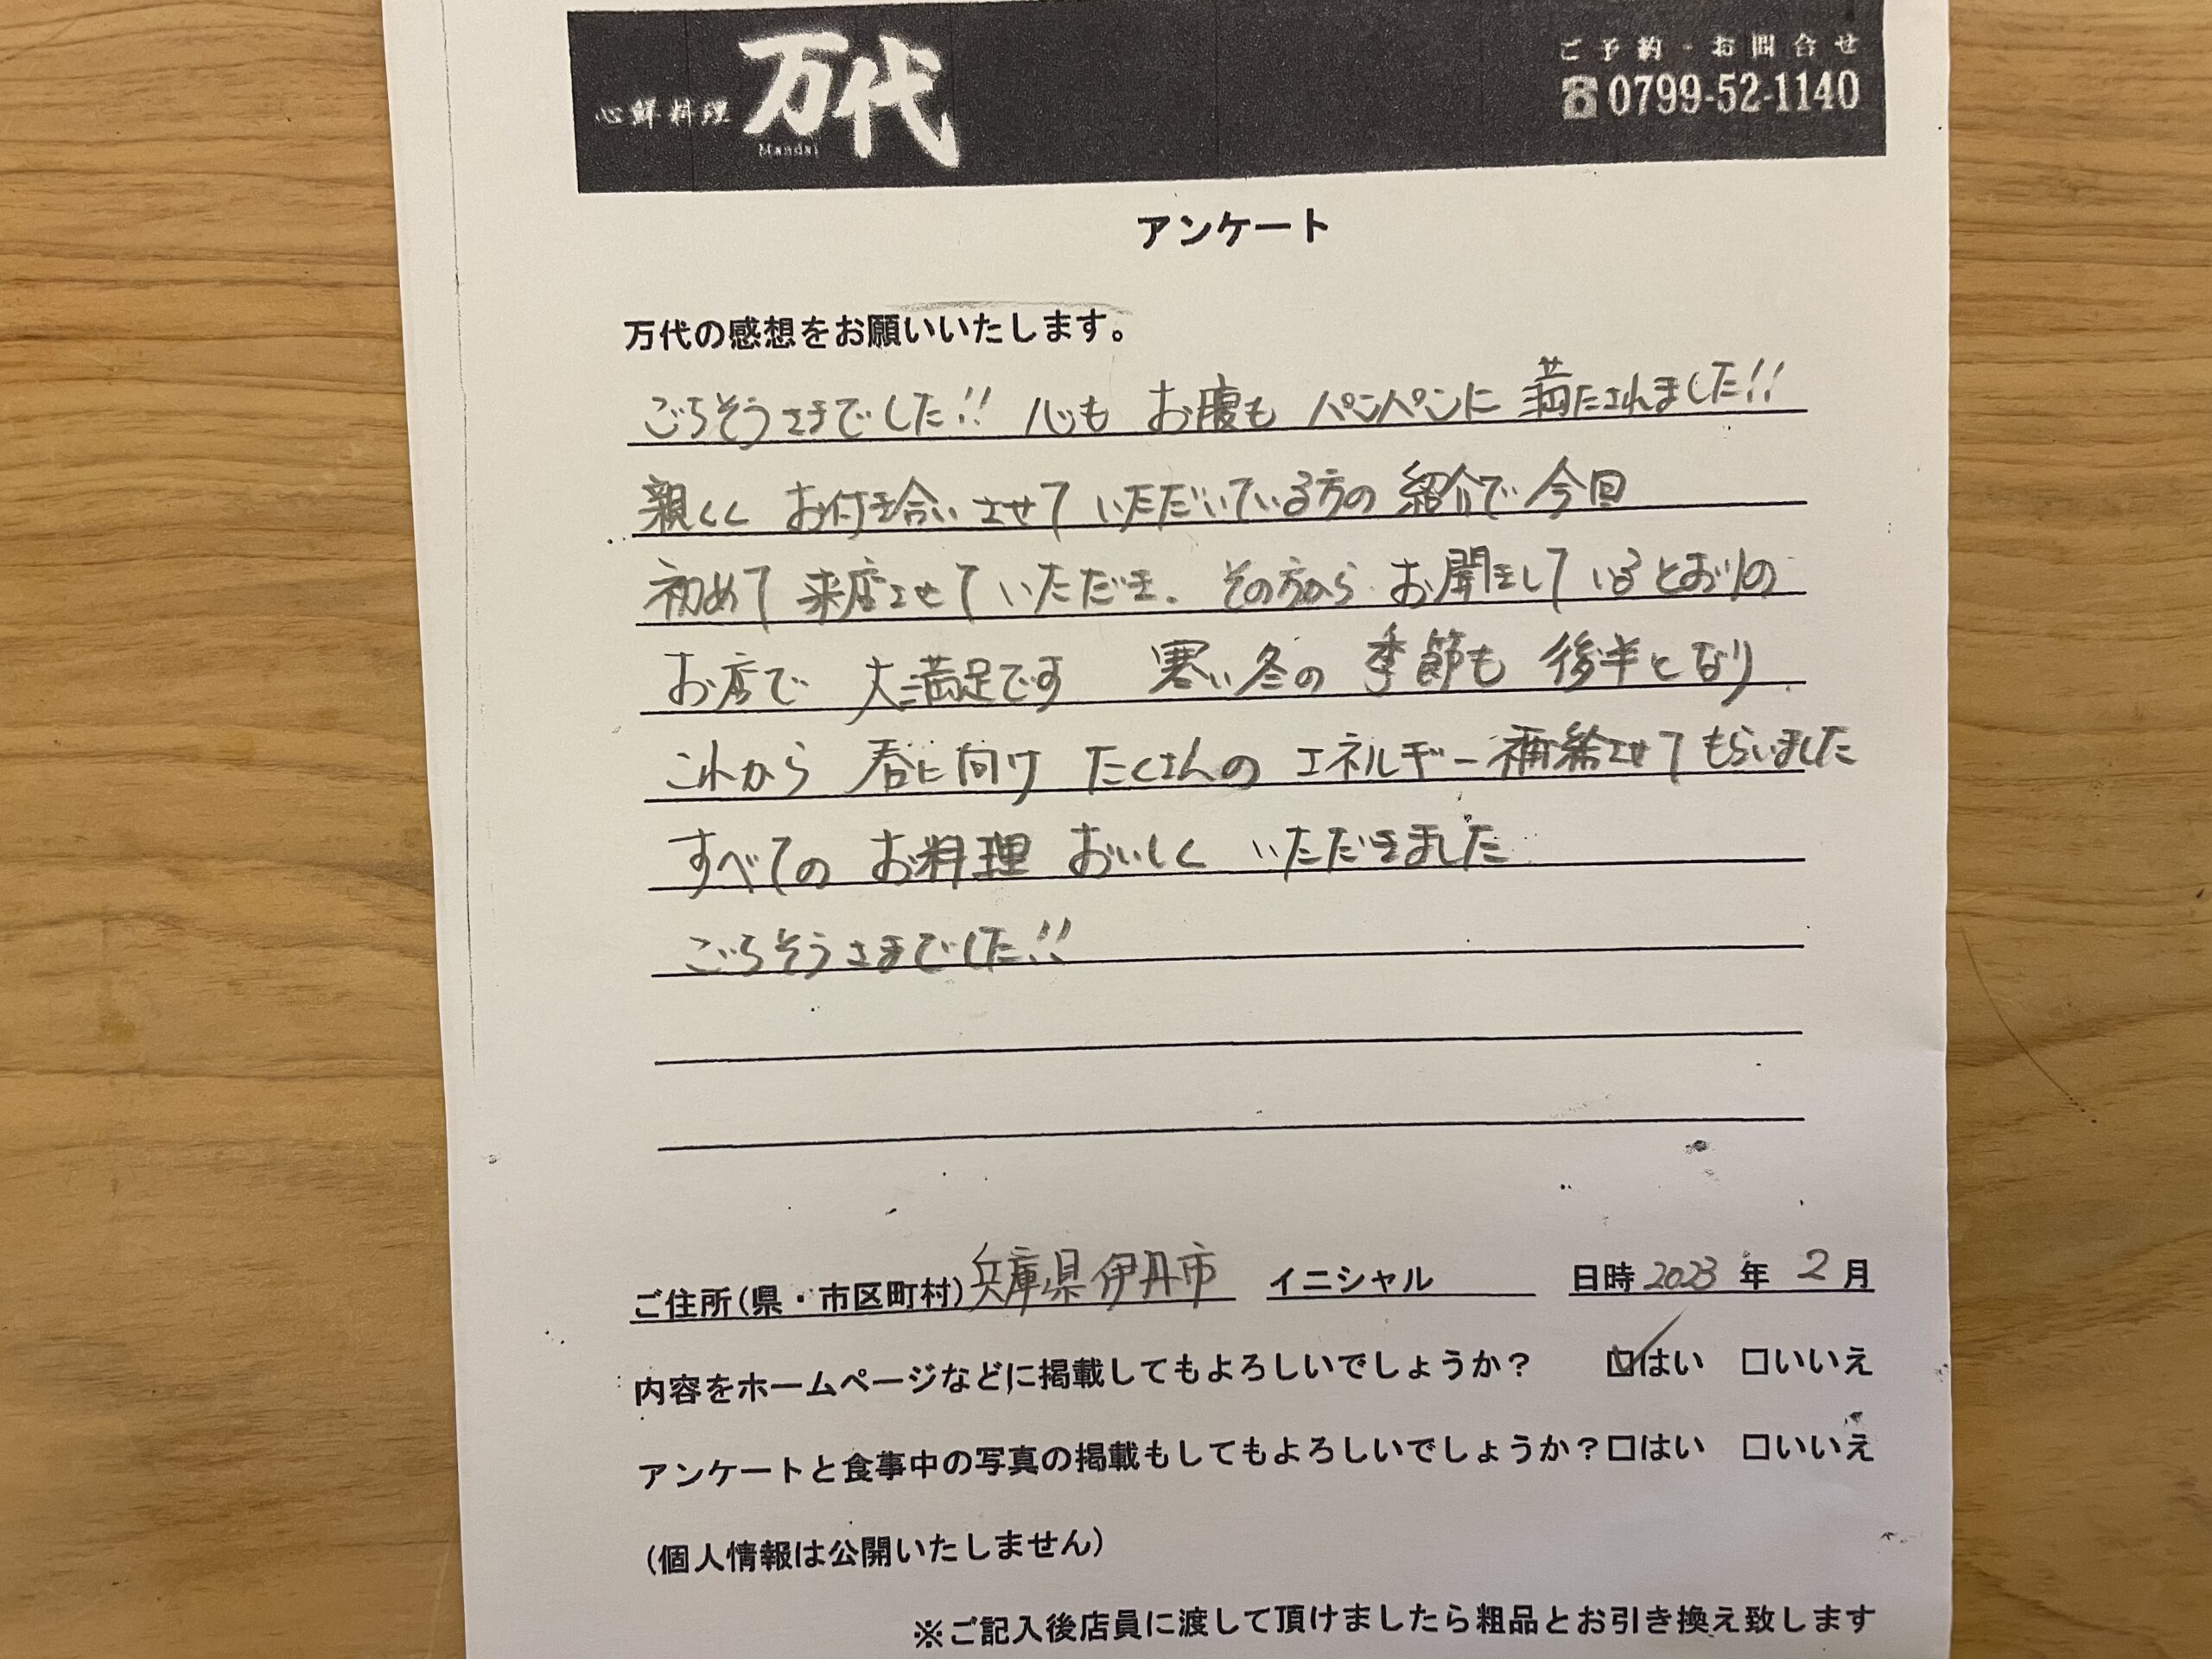 心鮮料理 万代
Mandai
ご予約・お問合せ
☎0799-52-1140
アンケート
万代の感想をお願いいたします。
ごちそうさまでした!! 心も お腹も パンパンに 満たされました!!
親しく お付き合いさせて いただいている方の 紹介で 今回
初めて 来店させて いただき、その方から お聞きして いるとおりの
お店で 大満足です 寒い冬の 季節も 後半となり
これから 春に向け たくさんの エネルギー補給させて もらいました
すべての お料理 おいしく いただきました
ごちそうさまでした!!
ご住所(県・市区町村)兵庫県伊丹市 イニシャル 日時 2023 年 2 月
内容をホームページなどに掲載してもよろしいでしょうか? ☑はい □いいえ
アンケートと食事中の写真の掲載もしてもよろしいでしょうか?□はい □いいえ
(個人情報は公開いたしません)
※ご記入後店員に渡して頂けましたら粗品とお引き換え致します